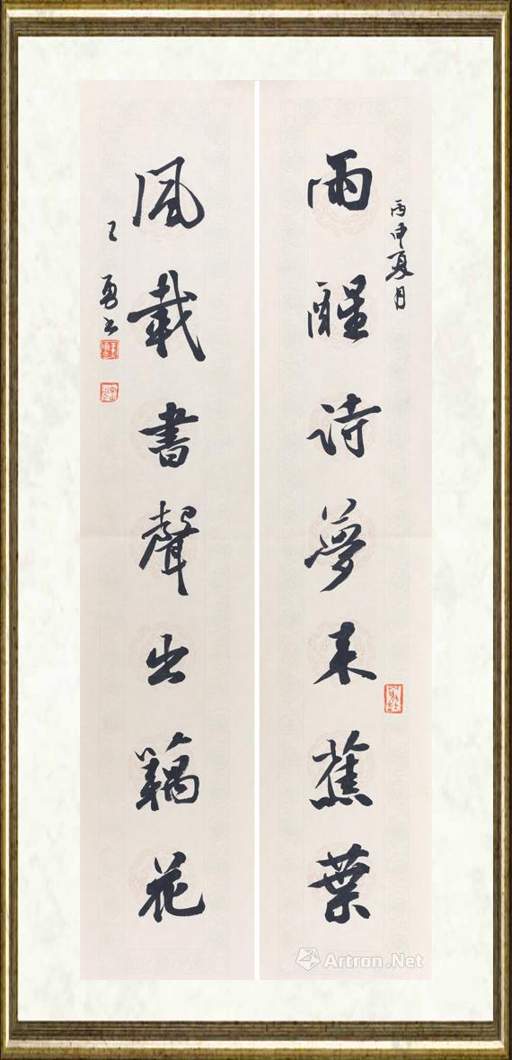 丙申夏月
雨醒詩夢来蕉葉
風載書聲出藕花
勇书
Artron.Net